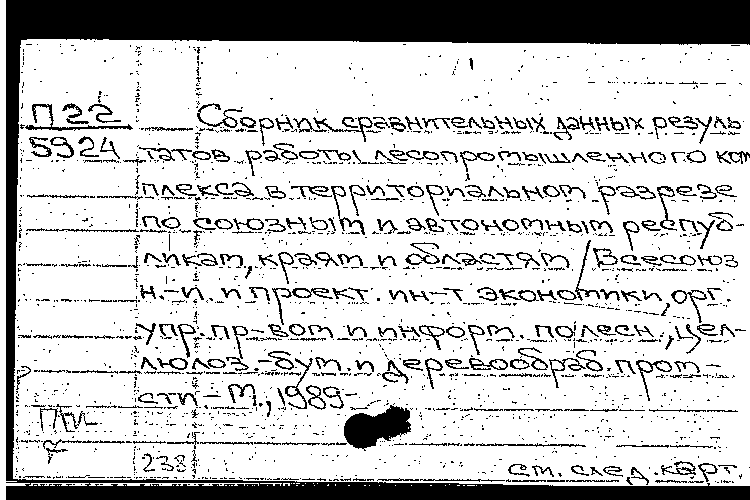 П22
5924
Сборник сравнительных данных резуль
татов работы лесопромышленного ком
плекса в территориальном разрезе
по союзным и автономным респуб-
ликам, краям и областям / Всесоюз
н.-и. и проект. ин-т экономики, орг.
упр. пр-вом и информ. по лесн., цел-
люлоз.-бум. и деревообраб. пром-
сти - М., 1989-
238
см. след. карт.